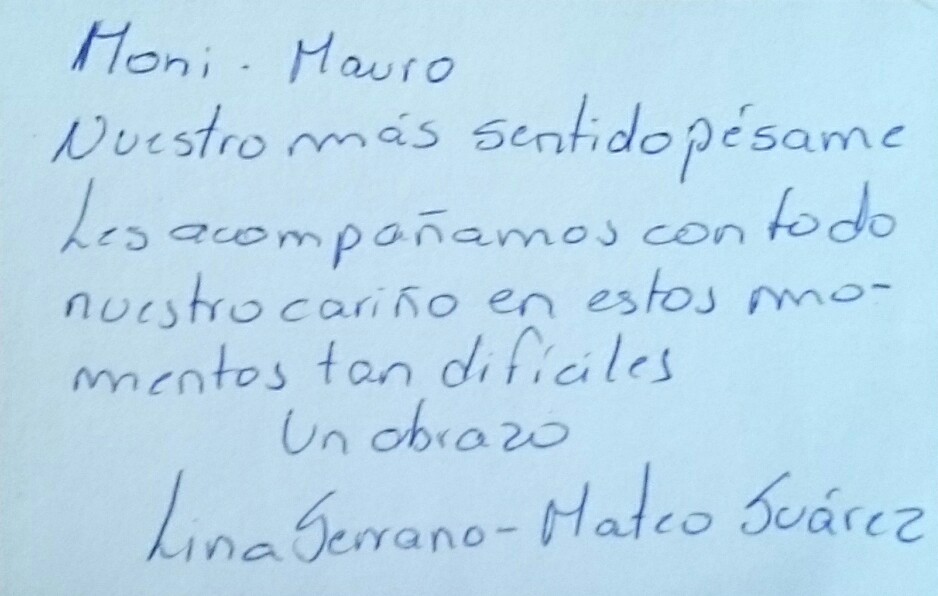 Moni . Mauro
Nuestro más sentido pésame
Les acompañamos con todo
nuestro cariño en estos mo-
mentos tan difíciles
Un abrazo
Lina Serrano - Mateo Suárez